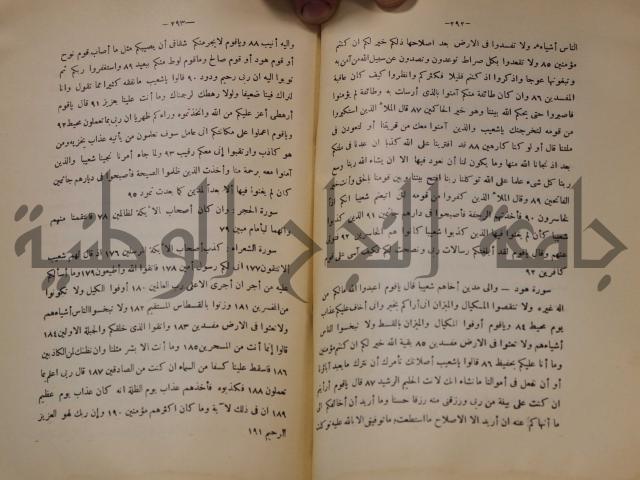 — ٢٩٢ —
الناس أشياءهم ولا تفسدوا فى الارض بعد اصلاحها ذلكم خير لكم ان كنتم
مؤمنين ٨٥ ولا تقعدوا بكل صراط توعدون وتصدون عن سبيل الله من آمن به
وتبغونها عوجا واذكروا اذ كنتم قليلا فكثركم وانظروا كيف كان عاقبة
المفسدين ٨٦ وان كان طائفة منكم آمنوا بالذى أرسلت به وطائفة لم يؤمنوا
فاصبروا حتى يحكم الله بيننا وهو خير الحاكمين ٨٧ قال الملأ الذين استكبروا
من قومه لنخرجنك ياشعيب والذين آمنوا معك من قريتنا أو لتعودن فى
ملتنا قال أو لو كنا كارهين ٨٨ قد افترينا على الله كذبا ان عدنا فى ملتكم
بعد اذ نجانا الله منها وما يكون لنا أن نعود فيها الا ان يشاء الله ربنا وسع
ربنا كل شىء علما على الله توكلنا ربنا افتح بيننا وبين قومنا بالحق وأنت خير
الفاتحين ٨٩ وقال الملأ الذين كفروا من قومه لئن اتبعتم شعيبا انكم اذا
لخاسرون ٩٠ فأخذتهم الرجفة فأصبحوا فى دارهم جاثمين ٩١ الذين كذبوا
شعيبا كأن لم يغنوا فيها الذين كذبوا شعيبا كانوا هم الخاسرين ٩٢ فتولى
عنهم وقال ياقوم لقد أبلغتكم رسالات ربى ونصحت لكم فكيف آسى على قوم
كافرين ٩٣
سورة هود — والى مدين أخاهم شعيبا قال ياقوم اعبدوا الله مالكم من
اله غيره ولا تنقصوا المكيال والميزان انى أراكم بخير وانى أخاف عليكم عذاب
يوم محيط ٨٤ وياقوم أوفوا المكيال والميزان بالقسط ولا تبخسوا الناس
أشياءهم ولا تعثوا فى الارض مفسدين ٨٥ بقية الله خير لكم ان كنتم مؤمنين
وما أنا عليكم بحفيظ ٨٦ قالوا ياشعيب أصلاتك تأمرك أن نترك ما يعبد آباؤنا
أو أن نفعل فى أموالنا مانشاء انك لانت الحليم الرشيد ٨٧ قال ياقوم أرأيتم
ان كنت على بينة من ربى ورزقنى منه رزقا حسنا وما أريد أن أخالفكم الى
ما أنهاكم عنه ان أريد الا الاصلاح ما استطعت وما توفيقى الا بالله عليه توكلت
— ٢٩٣ —
واليه أنيب ٨٨ وياقوم لايجرمنكم شقاقى أن يصيبكم مثل ما أصاب قوم نوح
أو قوم هود أو قوم صالح وماقوم لوط منكم ببعيد ٨٩ واستغفروا ربكم ثم
توبوا اليه ان ربى رحيم ودود ٩٠ قالوا ياشعيب مانفقه كثيرا مما تقول وانا
لنراك فينا ضعيفا ولولا رهطك لرجمناك وما أنت علينا بعزيز ٩١ قال ياقوم
أرهطى أعز عليكم من الله واتخذتموه وراءكم ظهريا ان ربى بما تعملون محيط ٩٢
وياقوم اعملوا على مكانتكم انى عامل سوف تعلمون من يأتيه عذاب يخزيه ومن
هو كاذب وارتقبوا إنى معكم رقيب ٩٣ ولما جاء أمرنا نجينا شعيبا والذين
آمنوا معه برحمة منا وأخذت الذين ظلموا الصيحة فأصبحوا فى ديارهم جاثمين
كأن لم يغنوا فيها ألا بعدا لمدين كما بعدت ثمود ٩٥
سورة الحجر: وان كان أصحاب الأيكة لظالمين ٧٨ فانتقمنا منهم
وانهما لبأمام مبين ٧٩
سورة الشعراء: كذب أصحاب الأيكة المرسلين ١٧٦ اذ قال لهم شعيب
ألا تتقون ١٧٧ انى لكم رسول أمين ١٧٨ فاتقوا الله وأطيعون ١٧٩ وما أسألكم
عليه من أجر ان أجرى الا على رب العالمين ١٨٠ أوفوا الكيل ولا تكونوا
من المخسرين ١٨١ وزنوا بالقسطاس المستقيم ١٨٢ ولا تبخسوا الناس أشياءهم
ولا تعثوا فى الارض مفسدين ١٨٣ واتقوا الذى خلقكم والجبلة الاولين ١٨٤
قالوا إنما أنت من المسحرين ١٨٥ وما أنت الا بشر مثلنا وان نظنك لمن الكاذبين
١٨٦ فاسقط علينا كسفا من السماء ان كنت من الصادقين ١٨٧ قال ربى اعلم بما
تعملون ١٨٨ فكذبوه فأخذهم عذاب يوم الظلة انه كان عذاب يوم عظيم
١٨٩ ان فى ذلك لآية وما كان اكثرهم مؤمنين ١٩٠ وإن ربك لهو العزيز
الرحيم ١٩١
جامعة النجاح الوطنية